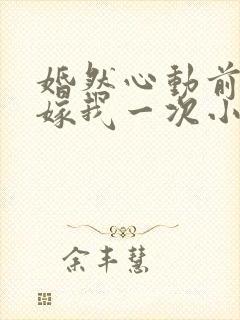 婚然心動前
嫁我一次小
余丰慧